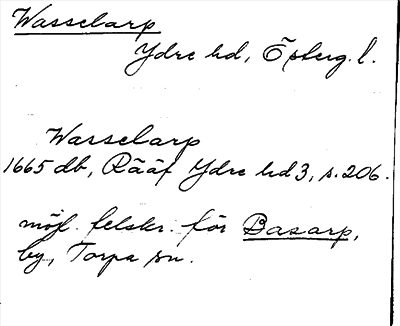 Wasselarp
Ydre hd, Österg. l.
Wasselarp
1665 db, Rääf Ydre hd 3, s. 206.
möjl. felskr. för Basarp,
by, Torpa sn.